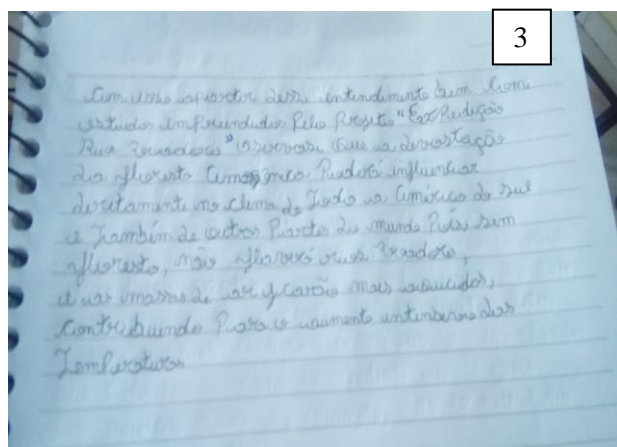 3
Com isso apartir desse entendimento bem Como
estudos empreendidos Pelo Projeto "Ex Pedição
Rios voadores" observase que a devastação
da floresta Amazônica Poderá influenciar
diretamente no clima de Toda a América do Sul
e Também de outras Partes do mundo Pois sem
floresta, não haverá rios voadores,
e as massas de ar ficarão mais aquecidas,
Contribuindo Para o aumento intensivo das
Temperaturas